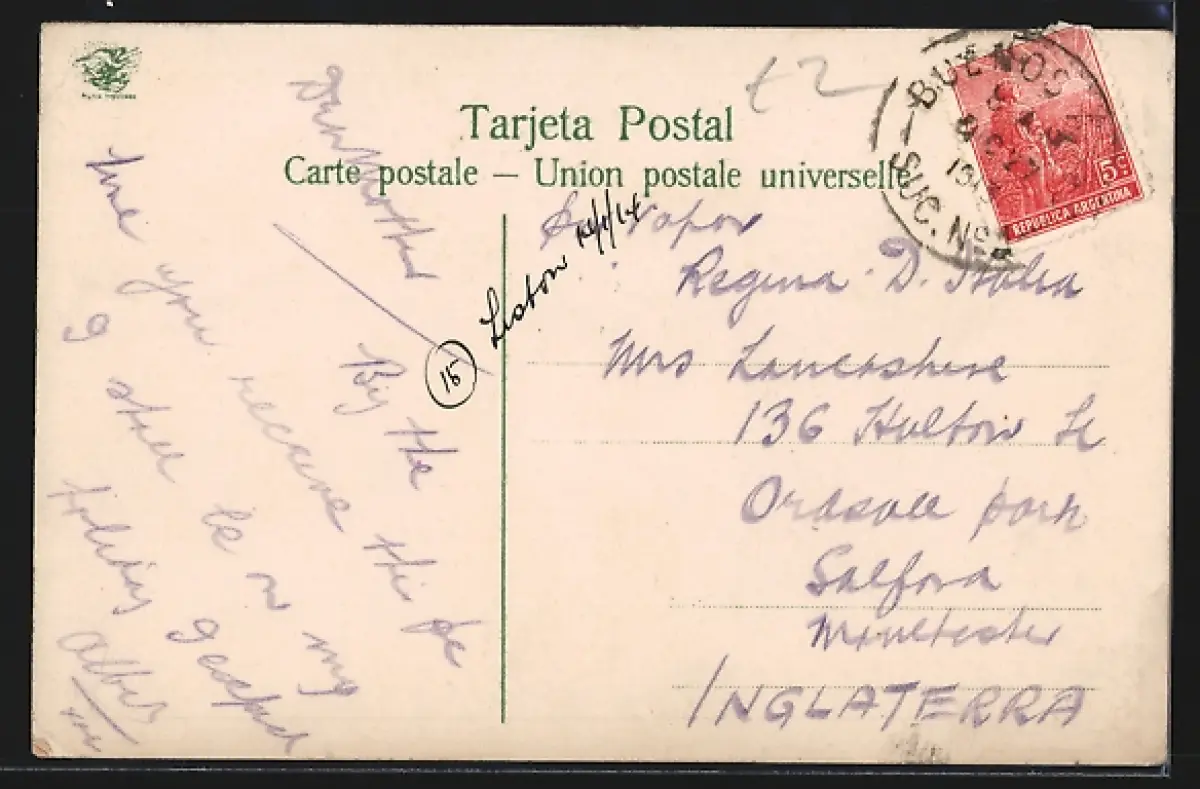 Tarjeta Postal
Carte postale — Union postale universelle
£2
BUENOS
SUC. No
5c
REPUBLICA ARGENTINA
Dear Mother
By the
time you receive this
I still be in my
holiday
Albert
15
Lisbon
Vapor
Regina D. Italia
Mrs Lancashire
136 Hulton St
Ordsall park
Salford
Manchester
INGLATERRA